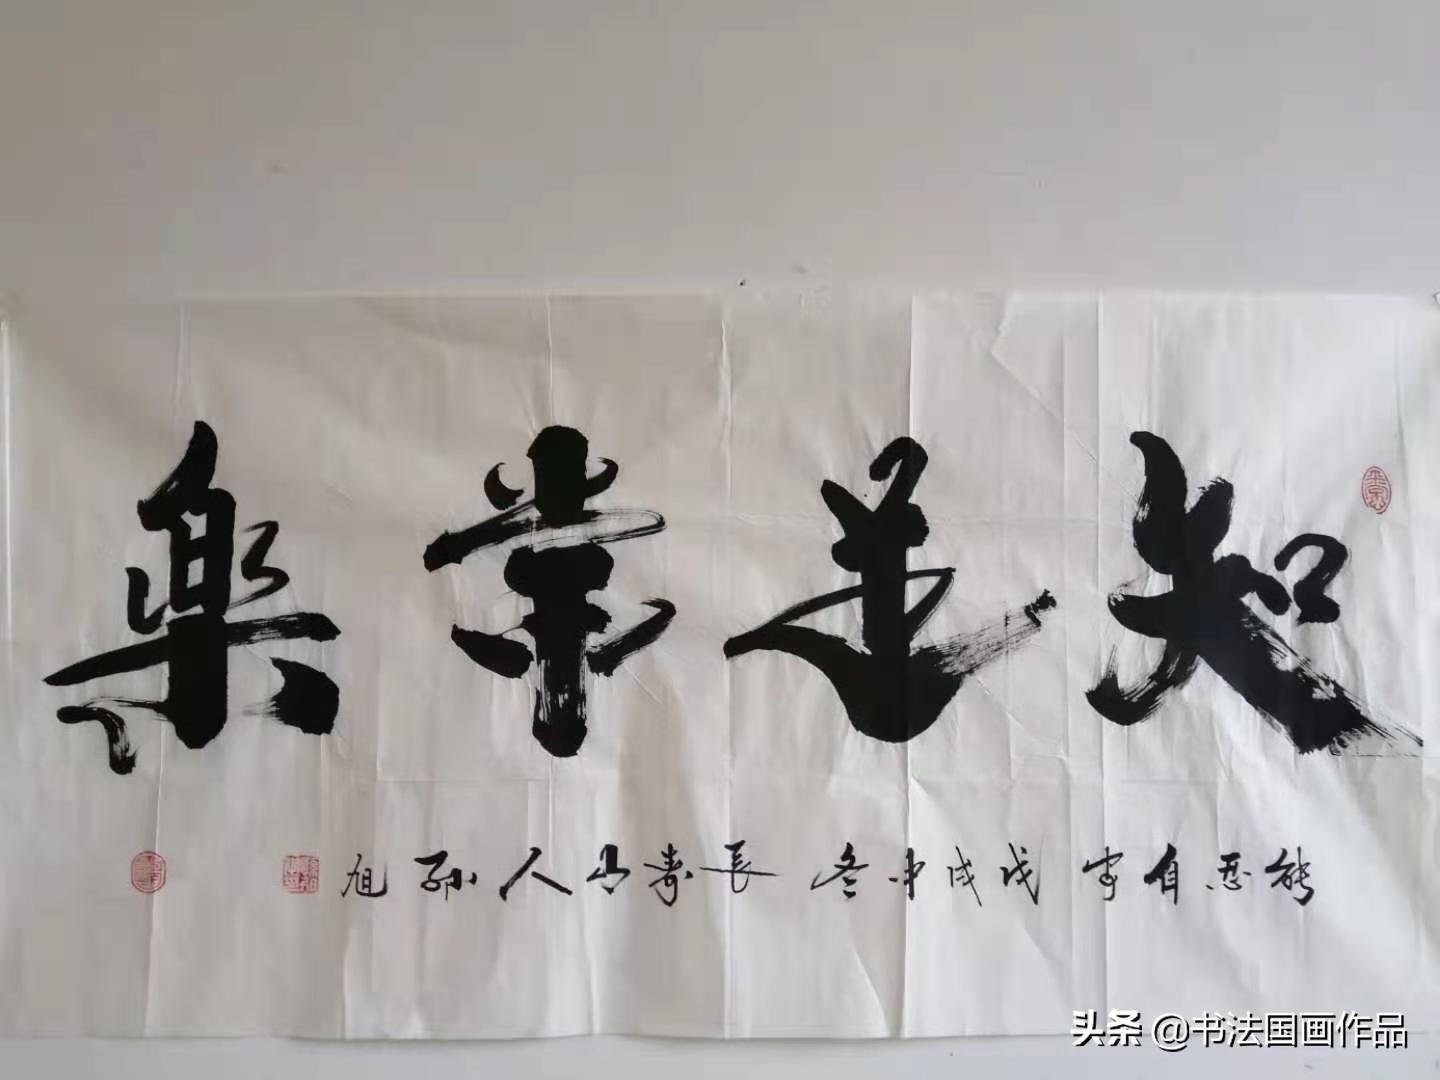 知足常樂
能忍自安 戊戌中冬 長寿山人 孫旭
头条 @书法国画作品